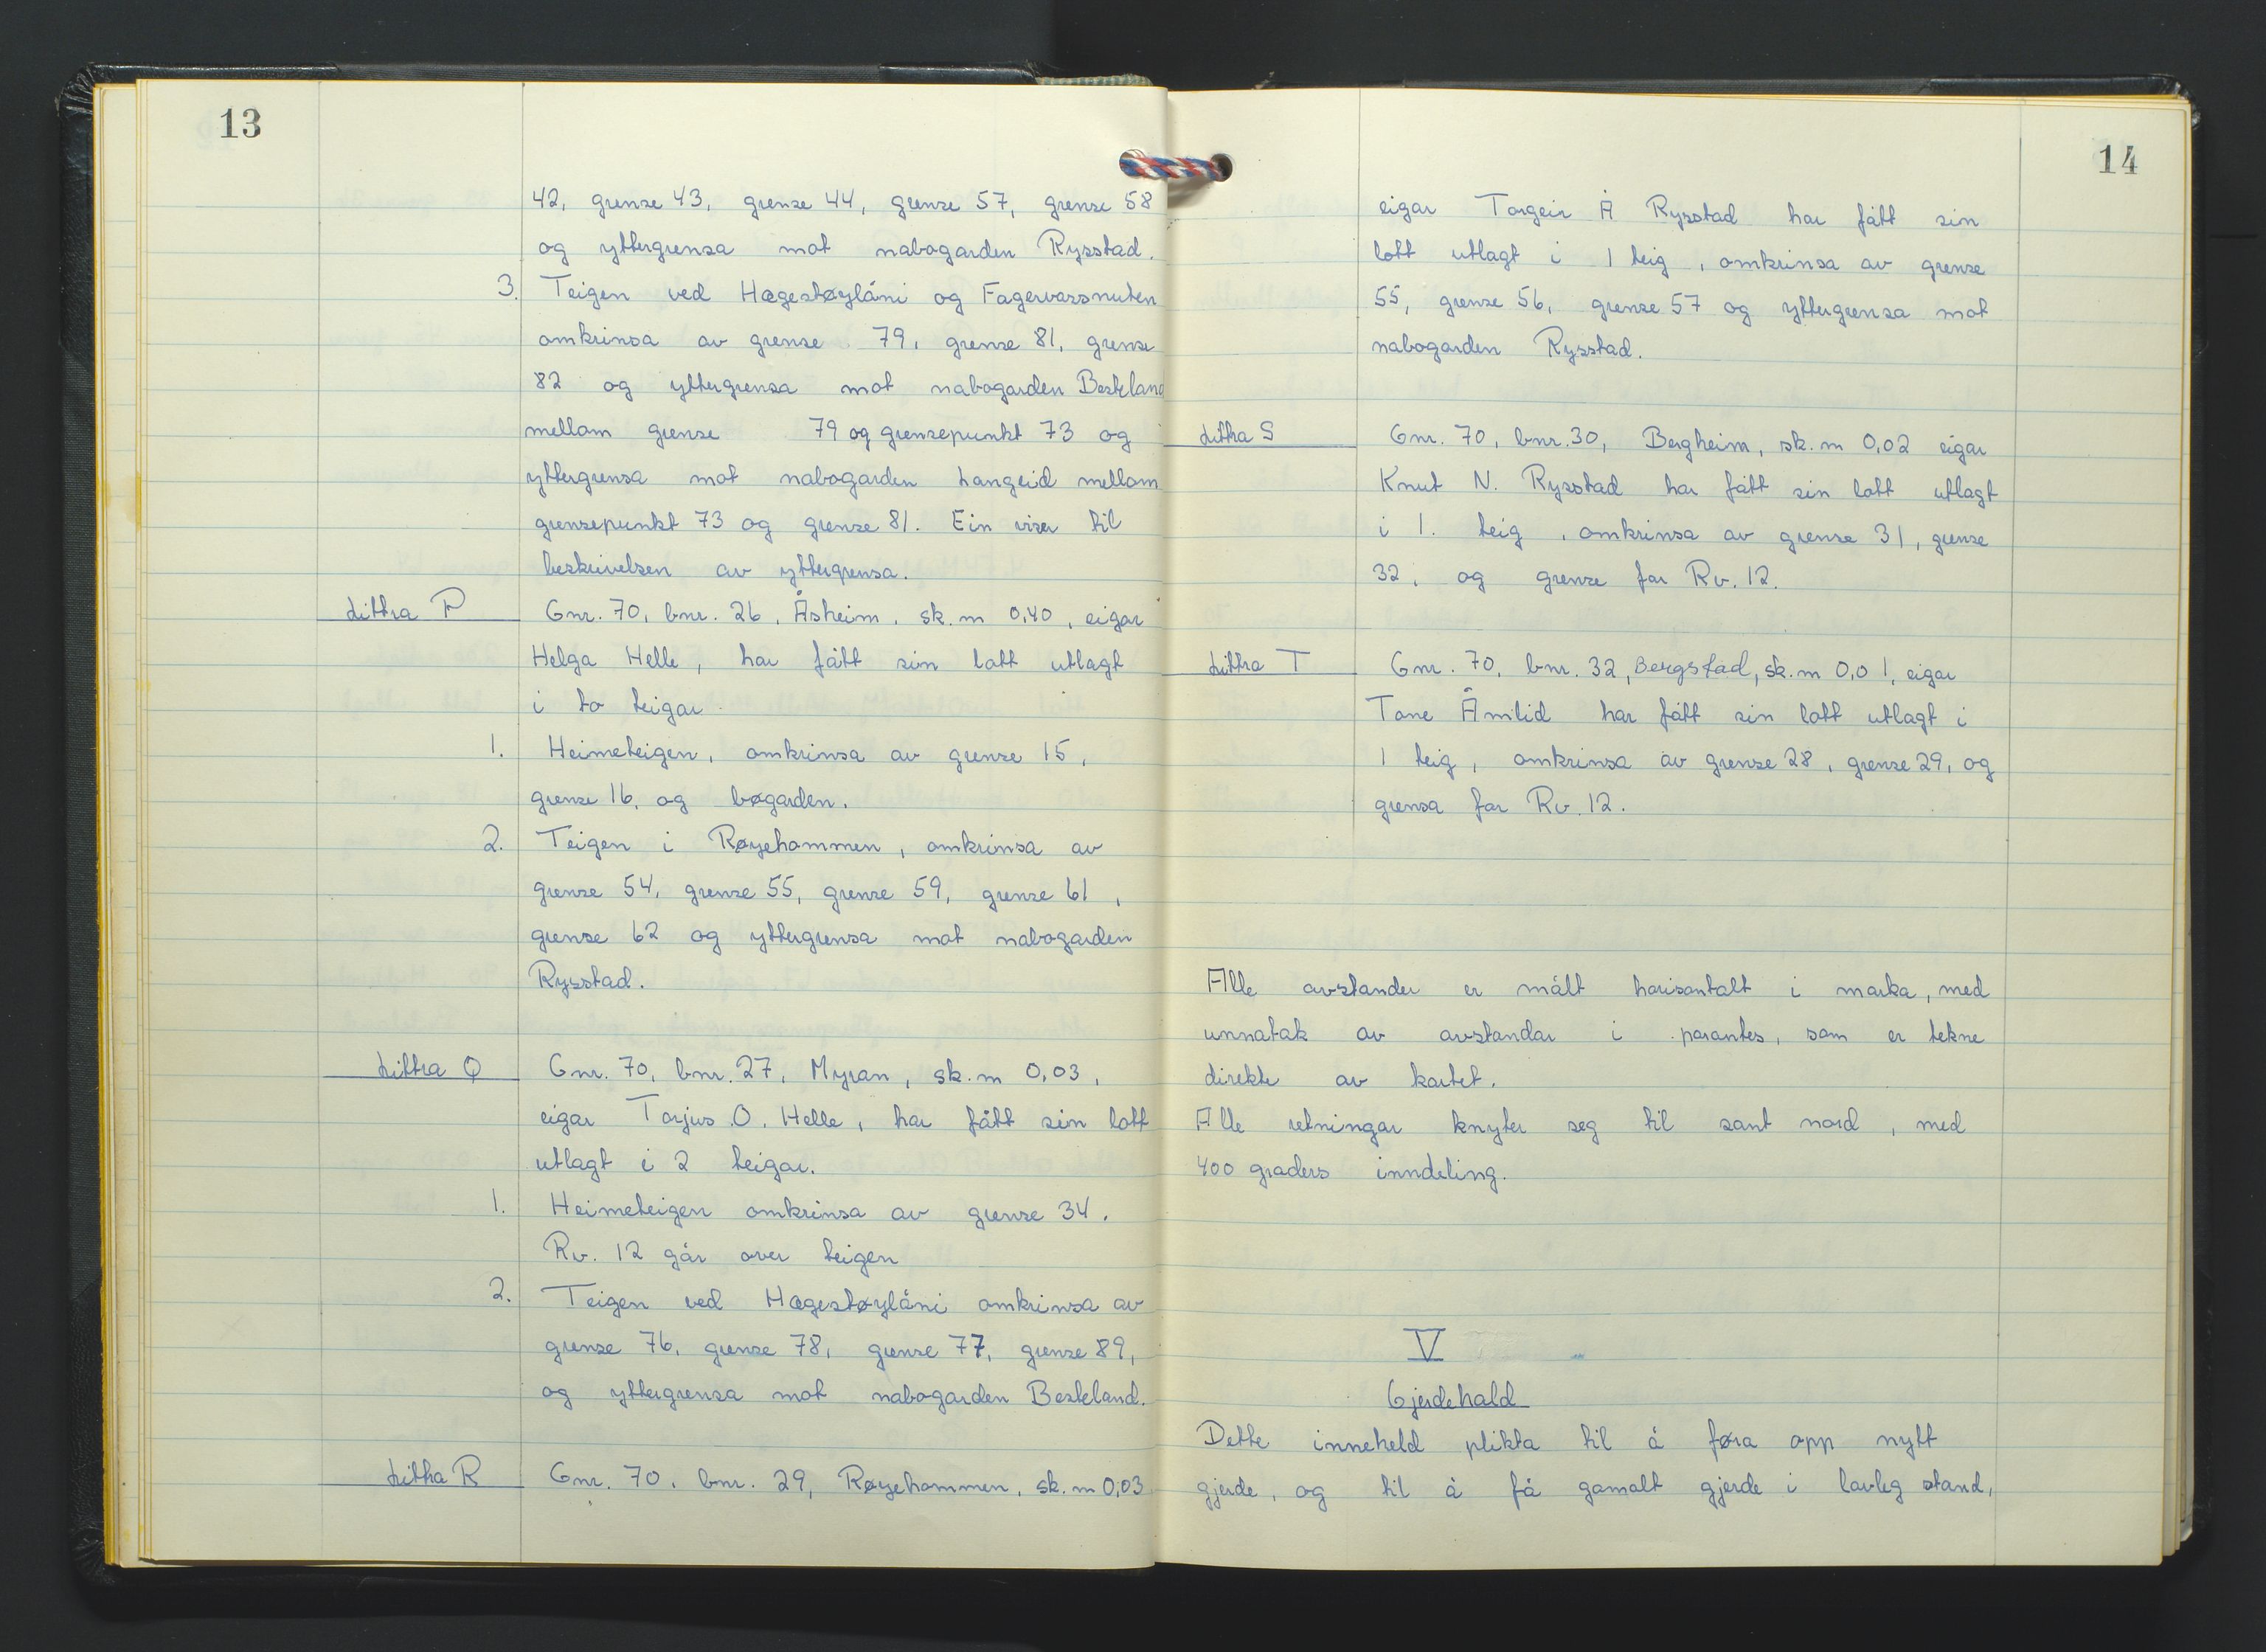 13
42, grense 43, grense 44, grense 57, grense 58
og yttergrensa mot nabogarden Rysstad.
3. Teigen ved Hægestøylåni og Fagervassnuten
omkrinsa av grense 79, grense 81, grense
82 og yttergrensa mot nabogarden Besteland
mellom grense 79 og grensepunkt 73 og
yttergrensa mot nabogarden Langeid mellom
grensepunkt 73 og grense 81. Ein viser til
beskrivelsen av yttergrensa.
Littra P Gnr. 70, bnr. 26, Åsheim, sk. m 0,40, eigar
Helga Helle, har fått sin lott utlagt
i to teigar.
1. Heimeteigen, omkrinsa av grense 15,
grense 16, og bøgarden.
2. Teigen i Røyehommen, omkrinsa av
grense 54, grense 55, grense 59, grense 61,
grense 62 og yttergrensa mot nabogarden
Rysstad.
Littra Q Gnr. 70, bnr. 27, Myran, sk. m 0,03,
eigar Torjus O. Helle, har fått sin lott
utlagt i 2 teigar.
1. Heimeteigen omkrinsa av grense 34.
Rv. 12 går over teigen
2. Teigen ved Hægestøylåni omkrinsa av
grense 76, grense 78, grense 77, grense 89,
og yttergrensa mot nabogarden Besteland.
Littra R Gnr. 70, bnr. 29, Røyehommen, sk. m 0,03
14
eigar Torgeir Å Rysstad har fått sin
lott utlagt i 1 teig, omkrinsa av grense
55, grense 56, grense 57 og yttergrensa mot
nabogarden Rysstad.
Littra S Gnr. 70, bnr. 30, Bergheim, sk. m 0,02 eigar
Knut N. Rysstad har fått sin lott utlagt
i 1. teig, omkrinsa av grense 31, grense
32, og grense for Rv. 12.
Littra T Gnr. 70, bnr. 32, Bergstad, sk. m 0,01, eigar
Tone Åmlid har fått sin lott utlagt i
1 teig, omkrinsa av grense 28, grense 29, og
grensa for Rv. 12.
Alle avstander er målt horisontalt i marka, med
unnatak av avstandar i parantes, som er tekne
direkte av kartet.
Alle retningar knyter seg til sant nord, med
400 graders inndeling.
V
Gjerdehald
Dette inneheld plikta til å føra opp nytt
gjerde, og til å få gamalt gjerde i lovleg stand,